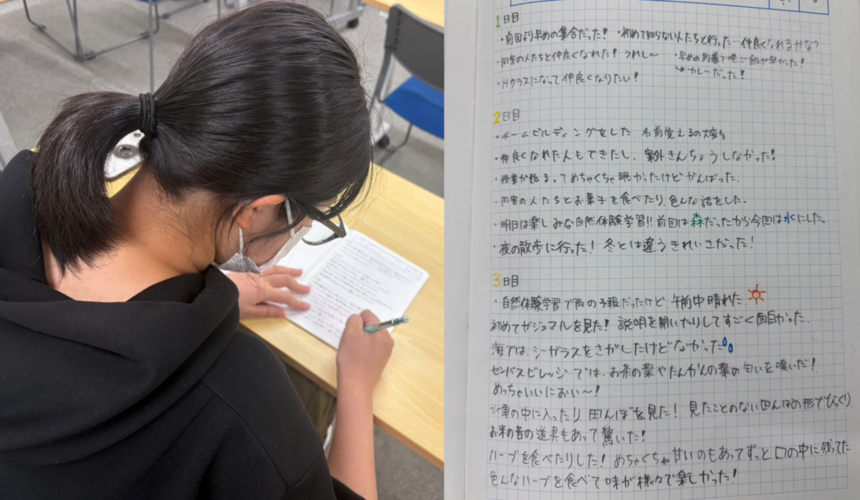 1日目
・前回より早めの集合だった! ・初めて知らない人たちと行った…仲良くなれるかな?
・同室の人たちと仲良くなれた! うれし〜 ・早めの到着で晩ご飯が早かった!
・Hクラスになって仲良くなりたい! カレーだった!
2日目
・チームビルディングをした 名前覚えるの大変
・仲良くなれた人もできたし、案外きんちょうしなかった!
・授業が始まってめちゃくちゃ眠かったけどがんばった。
・同室の人たちとお菓子を食べたり、色んな話をした。
・明日は楽しみな自然体験学習!! 前回は森だったから今回は水にした。
・夜の散歩に行った! 冬とは違うきれいさだった!
3日目
・自然体験学習で雨の予報だったけど、午前中晴れた
初めてガジュマルを見た! 説明を聞いたりしてすごく面白かった。
海では、シーガラスをさがしたけどなかった
ゼンバスビレッジでは、お茶の葉やたんかんの葉の匂いを嗅いだ!
めっちゃいいにおい〜!
の中に入ったり、田んぼを見た! 見たことのない田んぼの形でびっくり
お米の昔の道具もあって驚いた!
ハーブを食べたりした! めちゃくちゃ甘いのもあってずっと口の中に残ってた
色んなハーブを食べて味が様々で楽しかった!